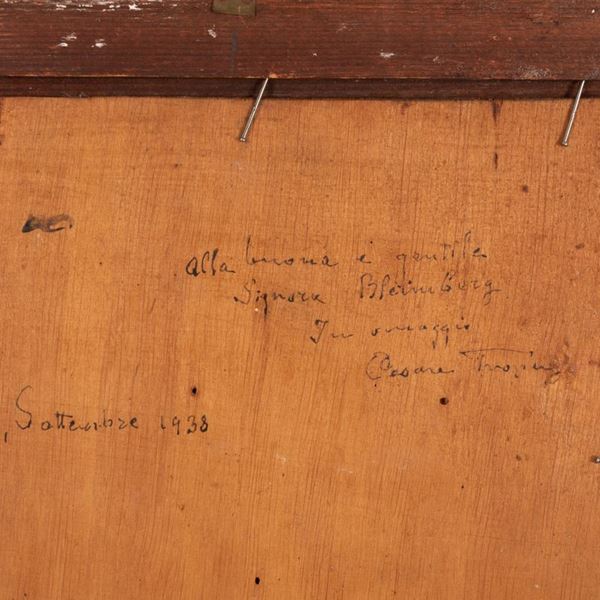 Alla buona e gentile
Signora Bleimberg
In omaggio
Cesare
Settembre 1938